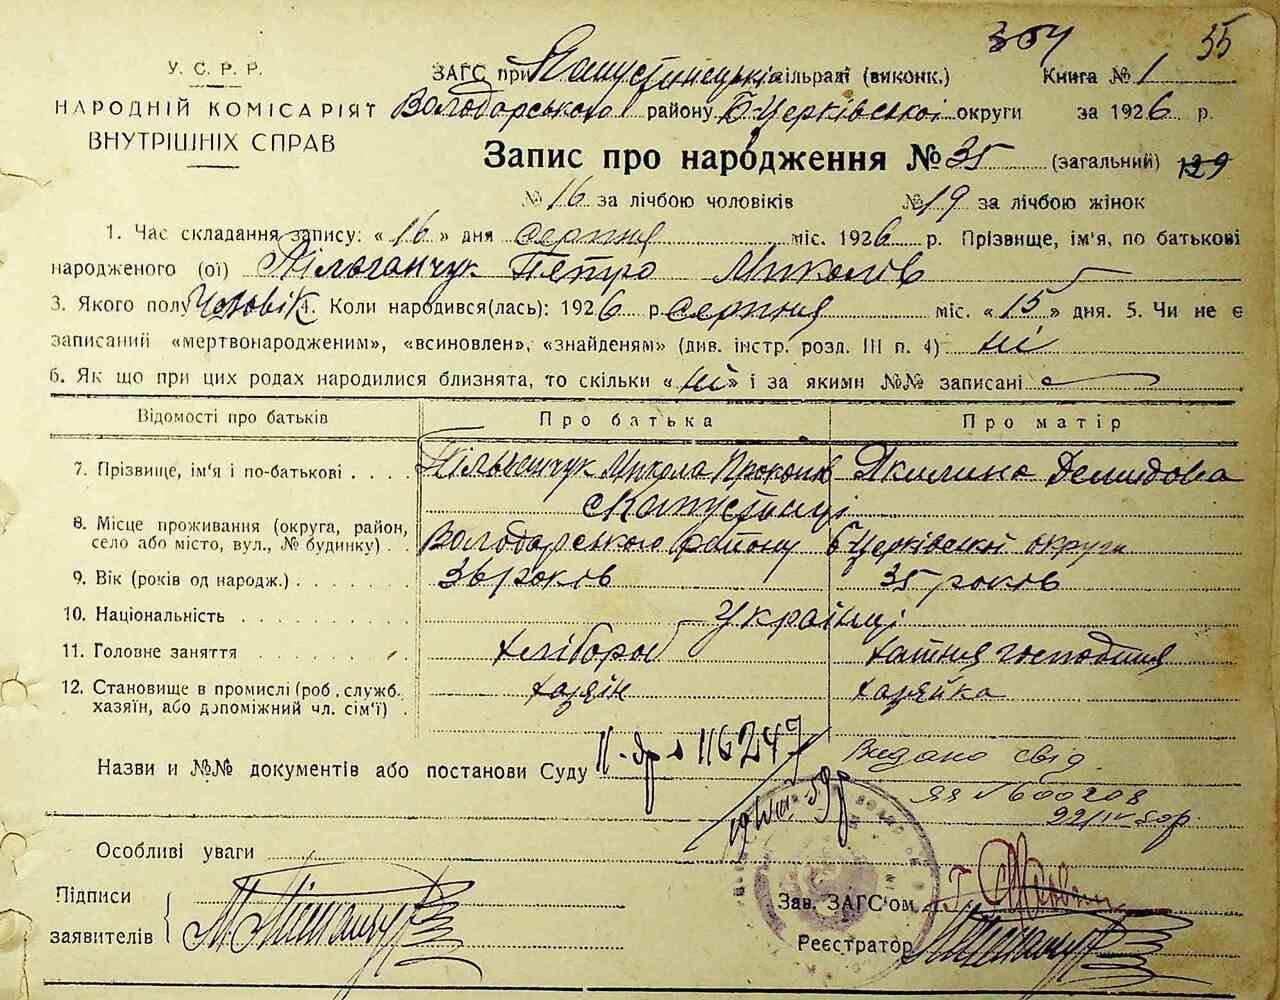 304 35
У. С. Р. Р. ЗАГС при Капустинецькій сільраді (виконк.) Книга № 1
НАРОДНІЙ КОМІСАРІЯТ Володарського району Б Церківської округи за 1926 р.
ВНУТРІШНІХ СПРАВ
Запис про народження № 35 (загальний) 129
№ 16 за лічбою чоловіків № 19 за лічбою жінок
1. Час складання запису: « 16 » дня серпня міс. 1926 р. Прізвище, ім'я, по батькові
народженого (ої) Петро Миколів
3. Якого полу Чоловік 4. Коли народився(лась): 1926 р. серпня міс. « 15 » дня. 5. Чи не є
записаний «мертвонародженим», «всиновлен», «знайденям» (див. інстр. розд. III п. 4) ні
6. Як що при цих родах народилися близнята, то скільки « ні » і за якими №№ записані
Відомості про батьків Про батька Про матір
7. Прізвище, ім'я і по-батькові . . . . Микола Прокопів Якилина Демидова
с Капустинці
8. Місце проживання (округа, район, село або місто, вул., № будинку) . . Володарського району Б Церківської округи
9. Вік (років од народж.) . . . . . . . 36 років 35 років
10. Національність . . . . . . . . . . українці
11. Головне заняття . . . . . . . . . . хлібороб хатня господиня
12. Становище в промислі (роб., служб. хазяїн, або допоміжний чл. сім'ї) . хазяїн хазяйка
Назви и №№ документів або постанови Суду 116247 Видано свід.
600208
Особливі уваги
Підписи
заявителів
Зав. ЗАГС'ом
Реєстратор